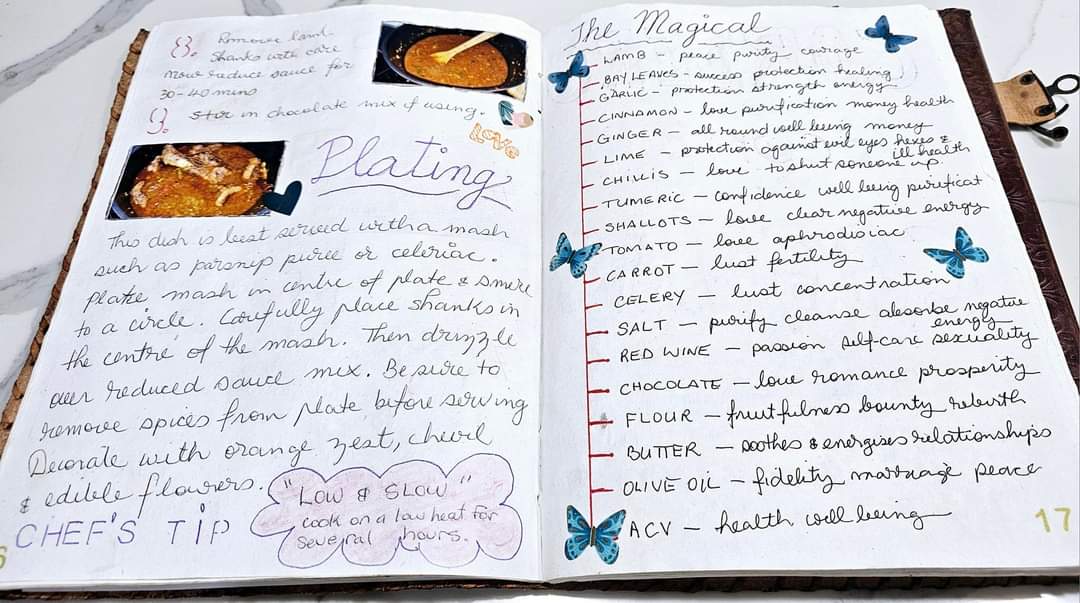 8. Remove lamb
Shanks with care
now reduce sauce for
30-40 mins
9. Stir in chocolate mix if using.
LOVE
Plating
This dish is best served with a mash
such as parsnip puree or celeriac.
Plate mash in centre of plate & smere
to a circle. Carufully place shanks in
the centre of the mash. Then drizzle
over reduced sauce mix. Be sure to
remove spices from plate before serving
Decorate with orange zest, chevil
& edible flowers.
CHEF'S TIP
"LOW & SLOW"
cook on a low heat for
several hours.
6
The Magical
LAMB - peace purity courage
BAY LEAVES - success protection healing
GARLIC - protection strength energy
CINNAMON - love purification money health
GINGER - all round well being money
LIME - protection against evil eyes hexes &
ill health
CHILLIS - love - to shut someone up
TUMERIC - confidence well being purificat
SHALLOTS - love clear negative energy
TOMATO - love aphrodisiac
CARROT - lust fertility
CELERY - lust concentration
SALT - purify cleanse absorbe negative
energy
RED WINE - passion self-care sexuality
CHOCOLATE - love romance prosperity
FLOUR - fruitfulness bounty rebirth
BUTTER - soothes & energises relationships
OLIVE OIL - fidelity marriage peace
ACV - health well being
17